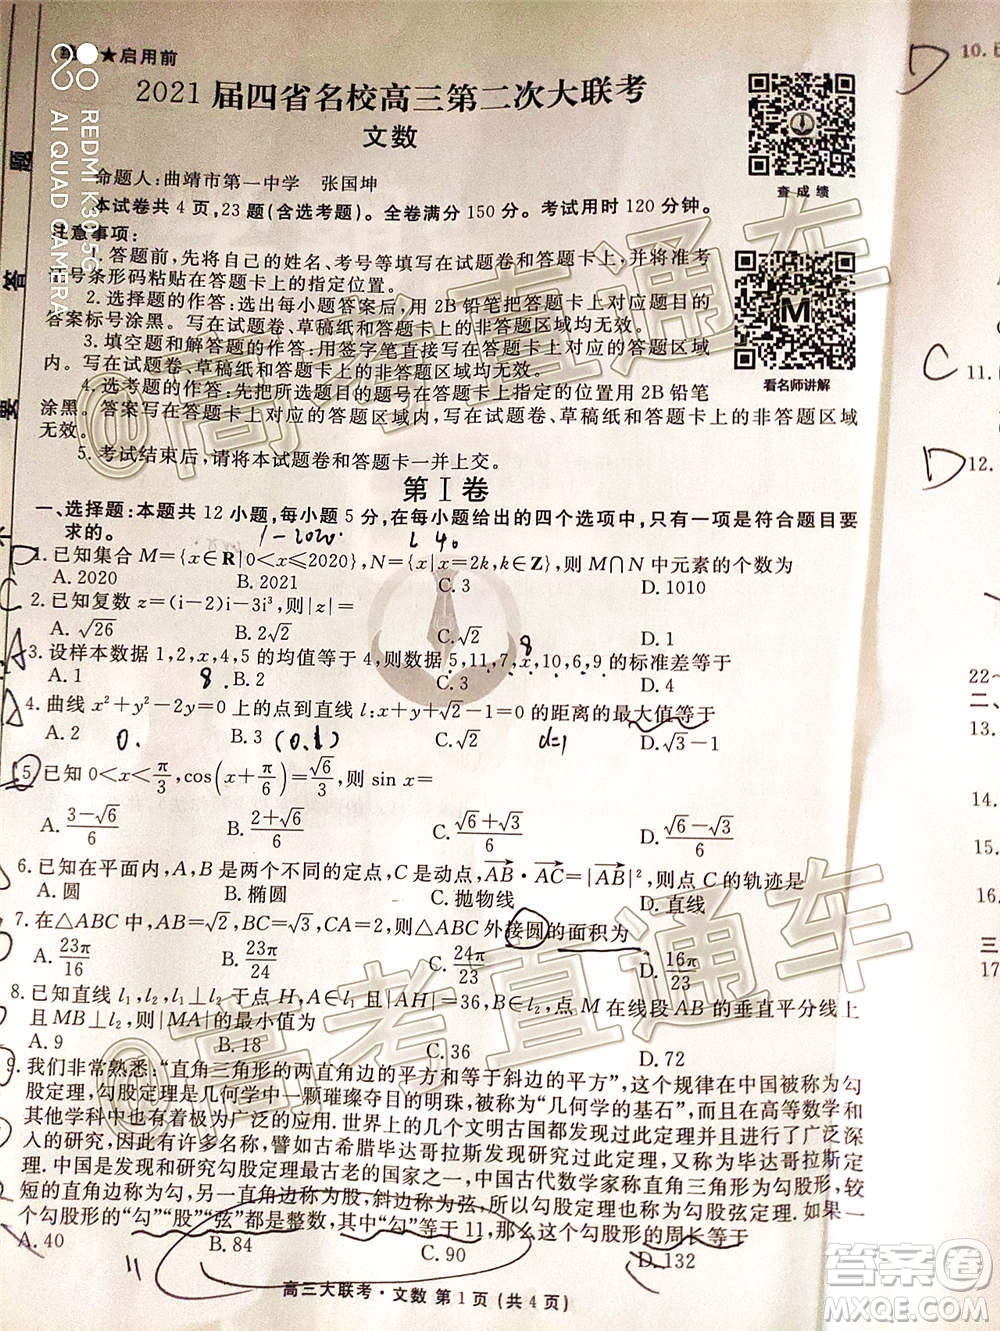 ★启用前
2021届四省名校高三第二次大联考
文数
命题人:曲靖市第一中学 张国坤
本试卷共4页,23题(含选考题)。全卷满分150分。考试用时120分钟。
注意事项:
1.答题前,先将自己的姓名、考号等填写在试题卷和答题卡上,并将准考
证号条形码粘贴在答题卡上的指定位置。
2.选择题的作答:选出每小题答案后,用2B铅笔把答题卡上对应题目的
答案标号涂黑。写在试题卷、草稿纸和答题卡上的非答题区域均无效。
3.填空题和解答题的作答:用签字笔直接写在答题卡上对应的答题区域
内。写在试题卷、草稿纸和答题卡上的非答题区域均无效。
4.选考题的作答:先把所选题目的题号在答题卡上指定的位置用2B铅笔
涂黑。答案写在答题卡上对应的答题区域内,写在试题卷、草稿纸和答题卡上的非答题区域
无效。
5.考试结束后,请将本试题卷和答题卡一并上交。
查成绩
看名师讲解
第Ⅰ卷
一、选择题:本题共12小题,每小题5分,在每小题给出的四个选项中,只有一项是符合题目要
求的。
1.已知集合M={x∈R|0<x≤2020},N={x|x=2k,k∈Z},则M∩N中元素的个数为
A.2020 B.2021 C.3 D.1010
2.已知复数z=(i-2)i-3i³,则|z|=
A.√26 B.2√2 C.√2 D.1
3.设样本数据1,2,x,4,5的均值等于4,则数据5,11,7,x,10,6,9的标准差等于
A.1 B.2 C.3 D.4
4.曲线x²+y²-2y=0上的点到直线l:x+y+√2-1=0的距离的最大值等于
A.2 B.3 C.√2 D.√3-1
5.已知0<x<π/3,cos(x+π/6)=√6/3,则sin x=
A.(3-√6)/6 B.(2+√6)/6 C.(√6+√3)/6 D.(√6-√3)/6
6.已知在平面内,A,B是两个不同的定点,C是动点,AB·AC=|AB|²,则点C的轨迹是
A.圆 B.椭圆 C.抛物线 D.直线
7.在△ABC中,AB=√2,BC=√3,CA=2,则△ABC外接圆的面积为
A.23π/16 B.23π/24 C.24π/23 D.16π/23
8.已知直线l₁,l₂,l₁⊥l₂于点H,A∈l₁且|AH|=36,B∈l₂,点M在线段AB的垂直平分线上
且MB⊥l₂,则|MA|的最小值为
A.9 B.18 C.36 D.72
9.我们非常熟悉:“直角三角形的两直角边的平方和等于斜边的平方”,这个规律在中国被称为勾
股定理,勾股定理是几何学中一颗璀璨夺目的明珠,被称为“几何学的基石”,而且在高等数学和
其他学科中也有着极为广泛的应用.世界上的几个文明古国都发现过此定理并进行了广泛深
入的研究,因此有许多名称,譬如古希腊毕达哥拉斯发现此定理,因而又称为毕达哥拉斯定
理.中国是发现和研究勾股定理最古老的国家之一,中国古代数学家称直角三角形为勾股形,较
短的直角边称为勾,另一直角边称为股,斜边称为弦,所以勾股定理也称为勾股弦定理.如果一
个勾股形的“勾”“股”“弦”都是整数,其中“勾”等于11,那么这个勾股形的周长等于
A.40 B.84 C.90 D.132
高三大联考·文数 第1页(共4页)
REDMI K30 5G
AI QUAD CAMERA
题
答
要
@高考直通车
@高考直通车
1-2020
8
8.
0.
d=1
11
D
C
D
10.
11.
12.
22~
二、
13.
14.
15.
16.
三
17
答案圈
MXQE.COM